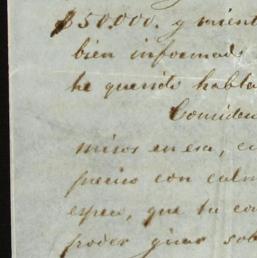 $50.000. y mient
bien informado
he querido habla
Consider
misos en esa, c
preciso con calm
espero, que tu co
poder girar sob